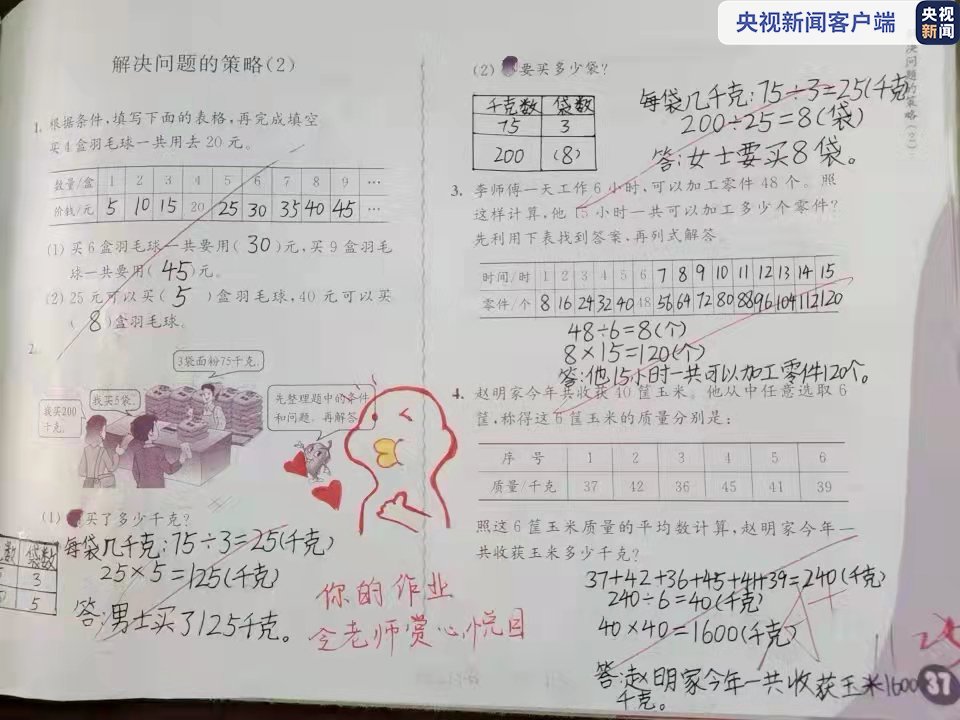 央视新闻客户端
央视
新闻
解决问题的策略(2)
1. 根据条件,填写下面的表格,再完成填空
买4盒羽毛球一共用去20元。
数量/盒 1 2 3 4 5 6 7 8 9 …
价钱/元 5 10 15 20 25 30 35 40 45 …
(1) 买6盒羽毛球一共要用( 30 )元,买9盒羽毛
球一共要用( 45 )元。
(2) 25元可以买( 5 )盒羽毛球,40元可以买
( 8 )盒羽毛球。
2.
3袋面粉75千克。
我买5袋。
我买200
千克。
先整理题中的条件
和问题,再解答
(1) 买了多少千克?
每袋几千克:75÷3=25(千克)
25×5=125(千克)
答:男士买了125千克。
数 袋数
3
5
你的作业
令老师赏心悦目
(2) 要买多少袋?
千克数 袋数
75 3
200 (8)
每袋几千克:75÷3=25(千克)
200÷25=8(袋)
答:女士要买8袋。
3. 李师傅一天工作6小时,可以加工零件48个。照
这样计算,他15小时一共可以加工多少个零件?
先利用下表找到答案,再列式解答
时间/时 1 2 3 4 5 6 7 8 9 10 11 12 13 14 15
零件/个 8 16 24 32 40 48 56 64 72 80 88 96 104 112 120
48÷6=8(个)
8×15=120(个)
答:他15小时一共可以加工零件120个。
4. 赵明家今年共收获40筐玉米。他从中任意选取6
筐,称得这6筐玉米的质量分别是:
序号 1 2 3 4 5 6
质量/千克 37 42 36 45 41 39
照这6筐玉米质量的平均数计算,赵明家今年一
共收获玉米多少千克?
37+42+36+45+41+39=240(千克)
240÷6=40(千克)
40×40=1600(千克)
A+
答:赵明家今年一共收获玉米1600
千克。
37
决问题的策略(2)